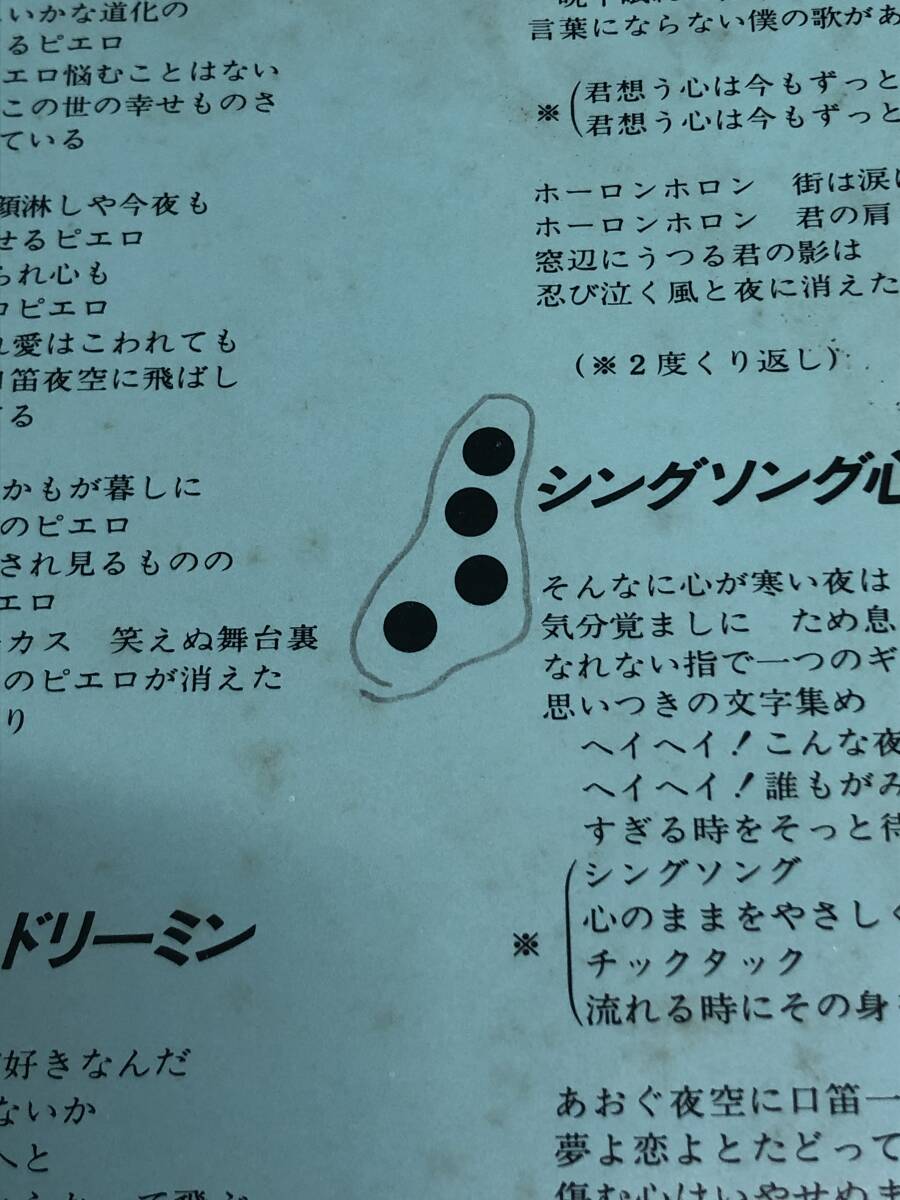 いかな道化の
るピエロ
エロ悩むことはない
この世の幸せものさ
ている
顔淋しや今夜も
せるピエロ
られ心も
ピエロ
愛はこわれても
笛夜空に飛ばし
てる
かもが暮しに
のピエロ
され見るものの
エロ
ーカス 笑えぬ舞台裏
のピエロが消えた
り
ドリーミン
好きなんだ
ないか
へと
言葉にならない僕の歌があ
※(君想う心は今もずっと
君想う心は今もずっと
ホーロンホロン 街は涙に
ホーロンホロン 君の肩
窓辺にうつる君の影は
忍び泣く風と夜に消えた
(※2度くり返し)
シングソング心
そんなに心が寒い夜は
気分覚ましに ため息
なれない指で一つのギ
思いつきの文字集め
ヘイヘイ!こんな夜
ヘイヘイ!誰もがみ
すぎる時をそっと待
シングソング
心のままをやさしく
※
チックタック
流れる時にその身を
あおぐ夜空に口笛一
夢よ恋よとたどって
傷む心はいやせぬま